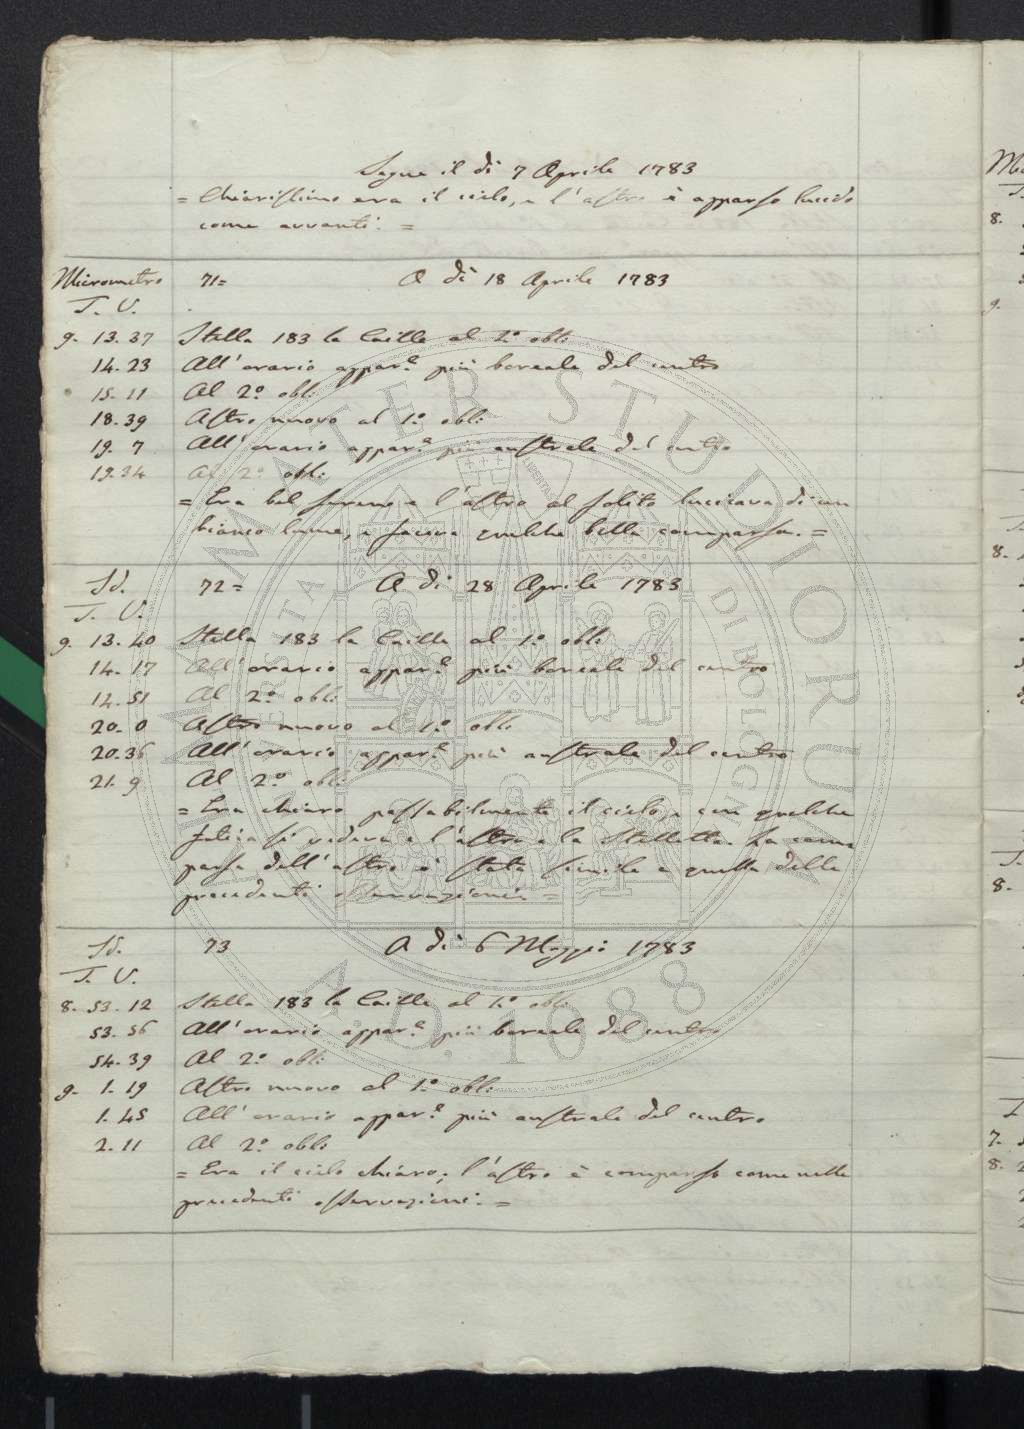 Segue il dì 7 Aprile 1783
= Chiarissimo era il cielo, e l'astro è apparso lucido
come avvanti. =
Micrometro 71= A dì 18 Aprile 1783
T. V.
9. 13. 37 Stella 183 la Caille al 1.º obli:
14. 23 All'orario appar.e più boreale del centro
15. 11 Al 2.º obli:
18. 39 Astro nuovo al 1.º obli:
19. 7 All'orario appar.e più australe del centro
19. 34 Al 2.º obli:
= Era bel sereno e l'astro al solito lucicava di un
bianco lume, e faceva qualche bella comparsa. =
Id. 72= A dì 28 Aprile 1783
T. V.
9. 13. 40 Stella 183 la Caille al 1.º obli:
14. 17 All'orario appar.e più boreale del centro
14. 51 Al 2.º obli:
20. 0 Astro nuovo al 1.º obli:
20. 36 All'orario appar.e più australe del centro
21. 9 Al 2.º obli:
= Era chiaro passabilmente il cielo, e con qualche
fatica si vedeva e l'astro e la Stelletta. La com
parsa dell'astro è stata simile a quella delle
precedenti osservazioni. =
Id. 73 A dì 6 Maggio 1783
T. V.
8. 53. 12 Stella 183 la Caille al 1.º obli:
53. 56 All'orario appar.e più boreale del centro
54. 39 Al 2.º obli:
9. 1. 19 Astro nuovo al 1.º obli:
1. 45 All'orario appar.e più australe del centro
2. 11 Al 2.º obli:
= Era il cielo chiaro; l'astro è comparso come nelle
precedenti osservazioni. =
ALMA MATER STUDIORUM
UNIVERSITÀ DI BOLOGNA
A.D. 1088